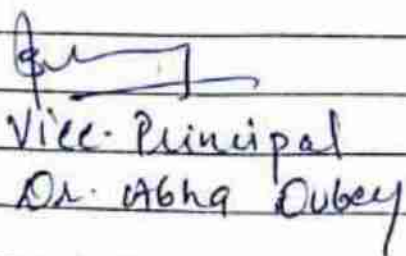 Vice-Principal
Dr. Abha Dubey